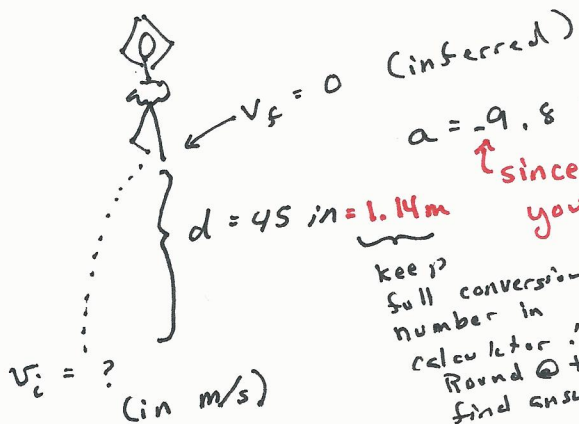 v_f = 0 (inferred)
a = -9.8
since
you
d = 45 in = 1.14 m
keep
full conversion
number in
calculator
Round @
find
v_i = ?
(in m/s)